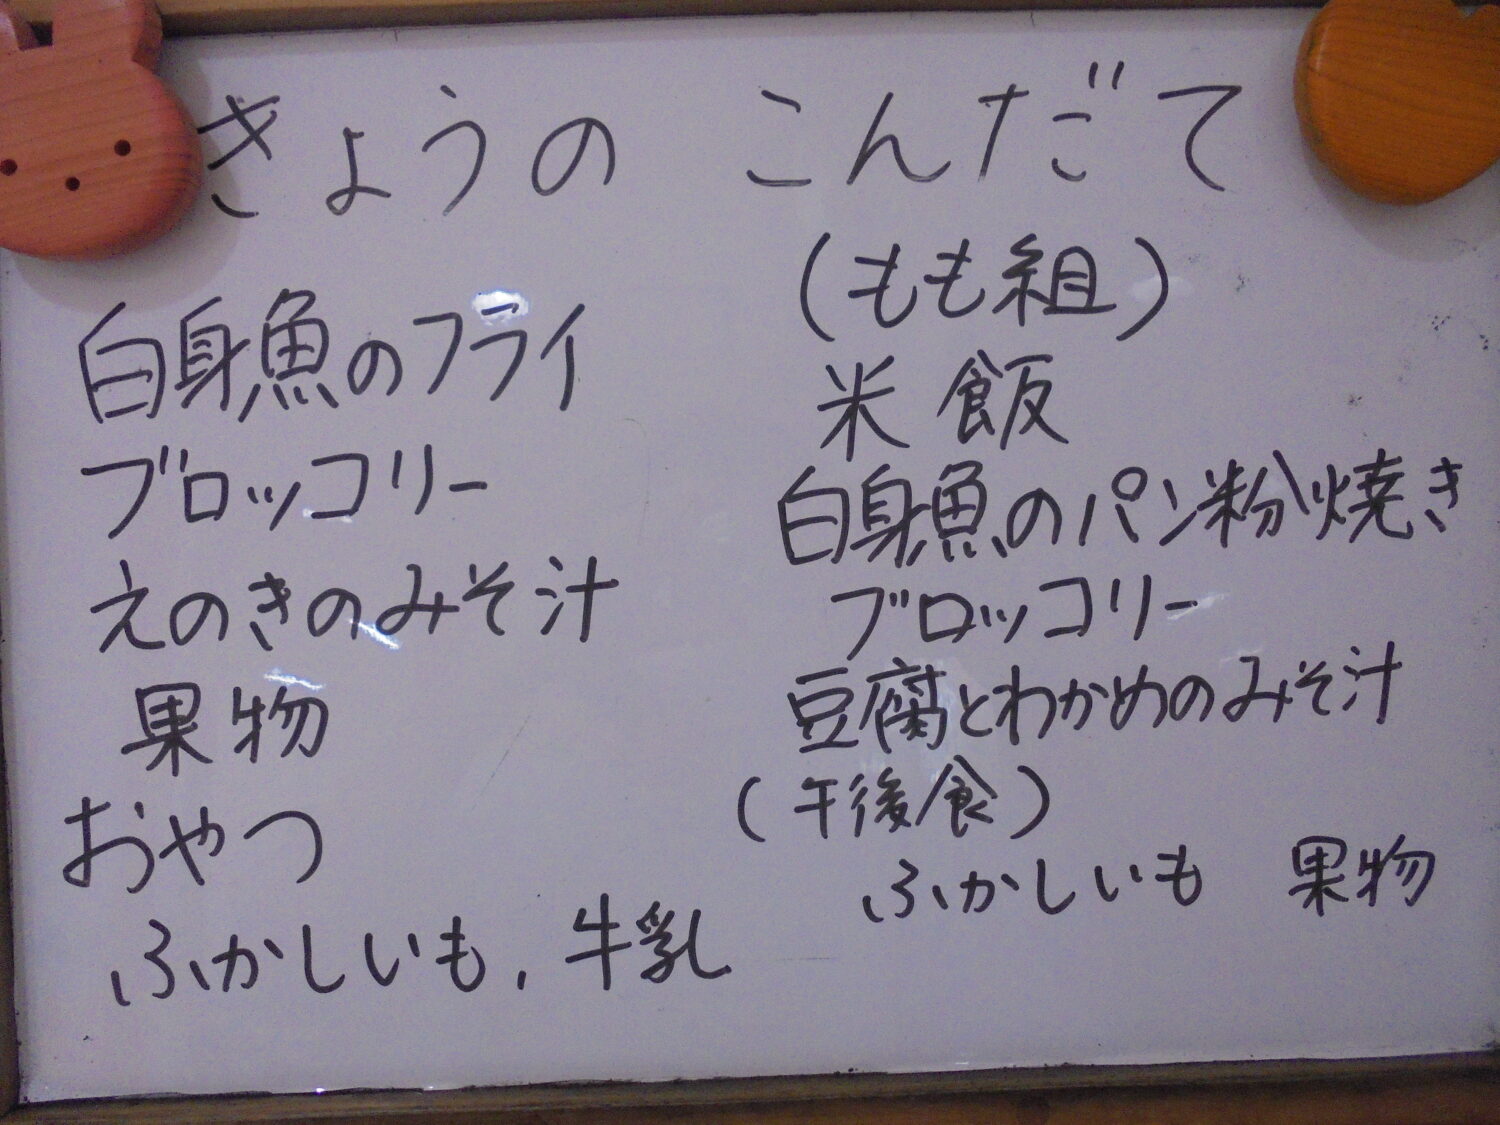 きょうの こんだて
白身魚のフライ
ブロッコリー
えのきのみそ汁
果物
おやつ
ふかしいも、牛乳
(もも組)
米飯
白身魚のパン粉焼き
ブロッコリー
豆腐とわかめのみそ汁
(午後食)
ふかしいも 果物